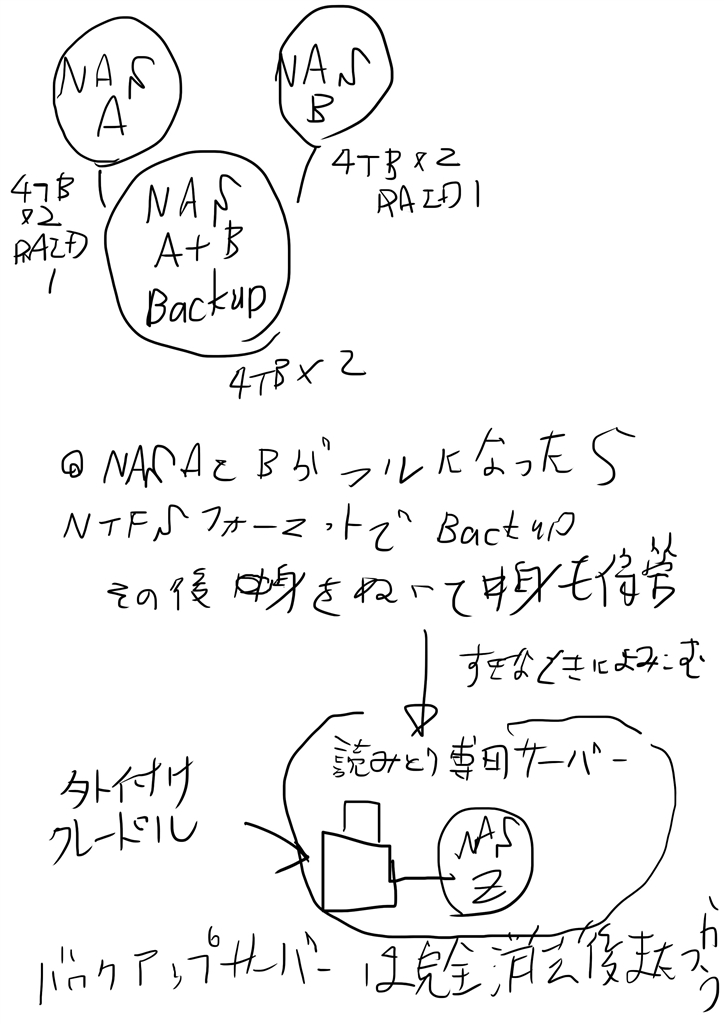 NAS
A
NAS
B
4TB
×2
RAID
1
4TB×2
RAID1
NAS
A+B
Backup
4TB×2
NASAとBがフルになったら
NTFSフォーマットでBackup
その後中身をぬいて中身も保管
すきなときによみこむ
読みとり専用サーバー
外付け
クレードル
NAS
Z
バックアップサーバーは完全消去後またつかう